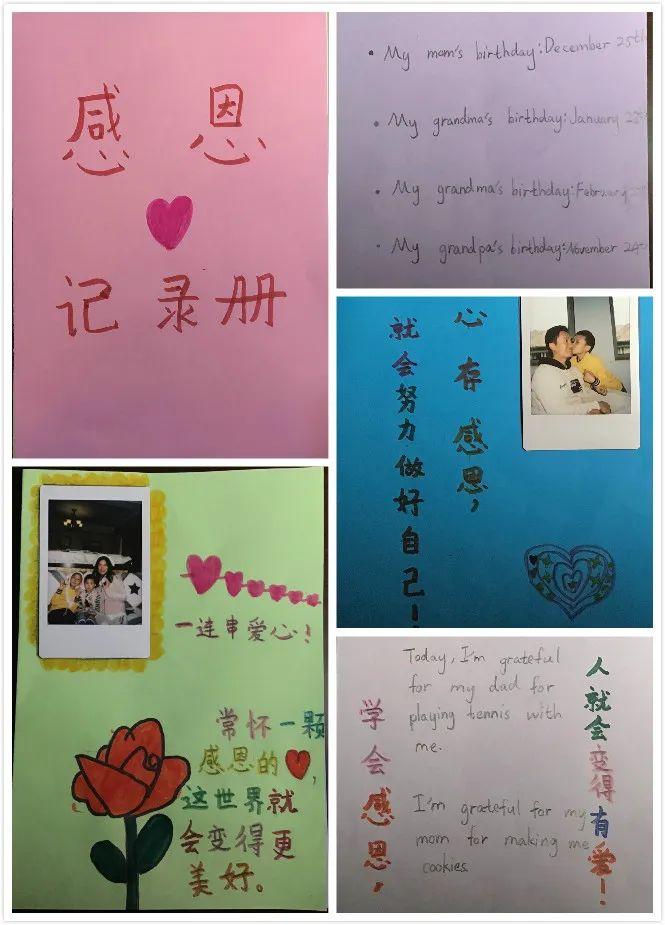 感恩
记录册
• My mom's birthday: December 25th
• My grandma's birthday: January
• My grandma's birthday: February
• My grandpa's birthday: November 24th
心存感恩，
就会努力做好自己！
一连串爱心！
常怀一颗
感恩的
这世界就
会变得更
美好。
Today, I'm grateful
for my dad for
playing tennis with
me.
I'm grateful for my
mom for making me
cookies.
学会感恩，
人就会变得有爱！